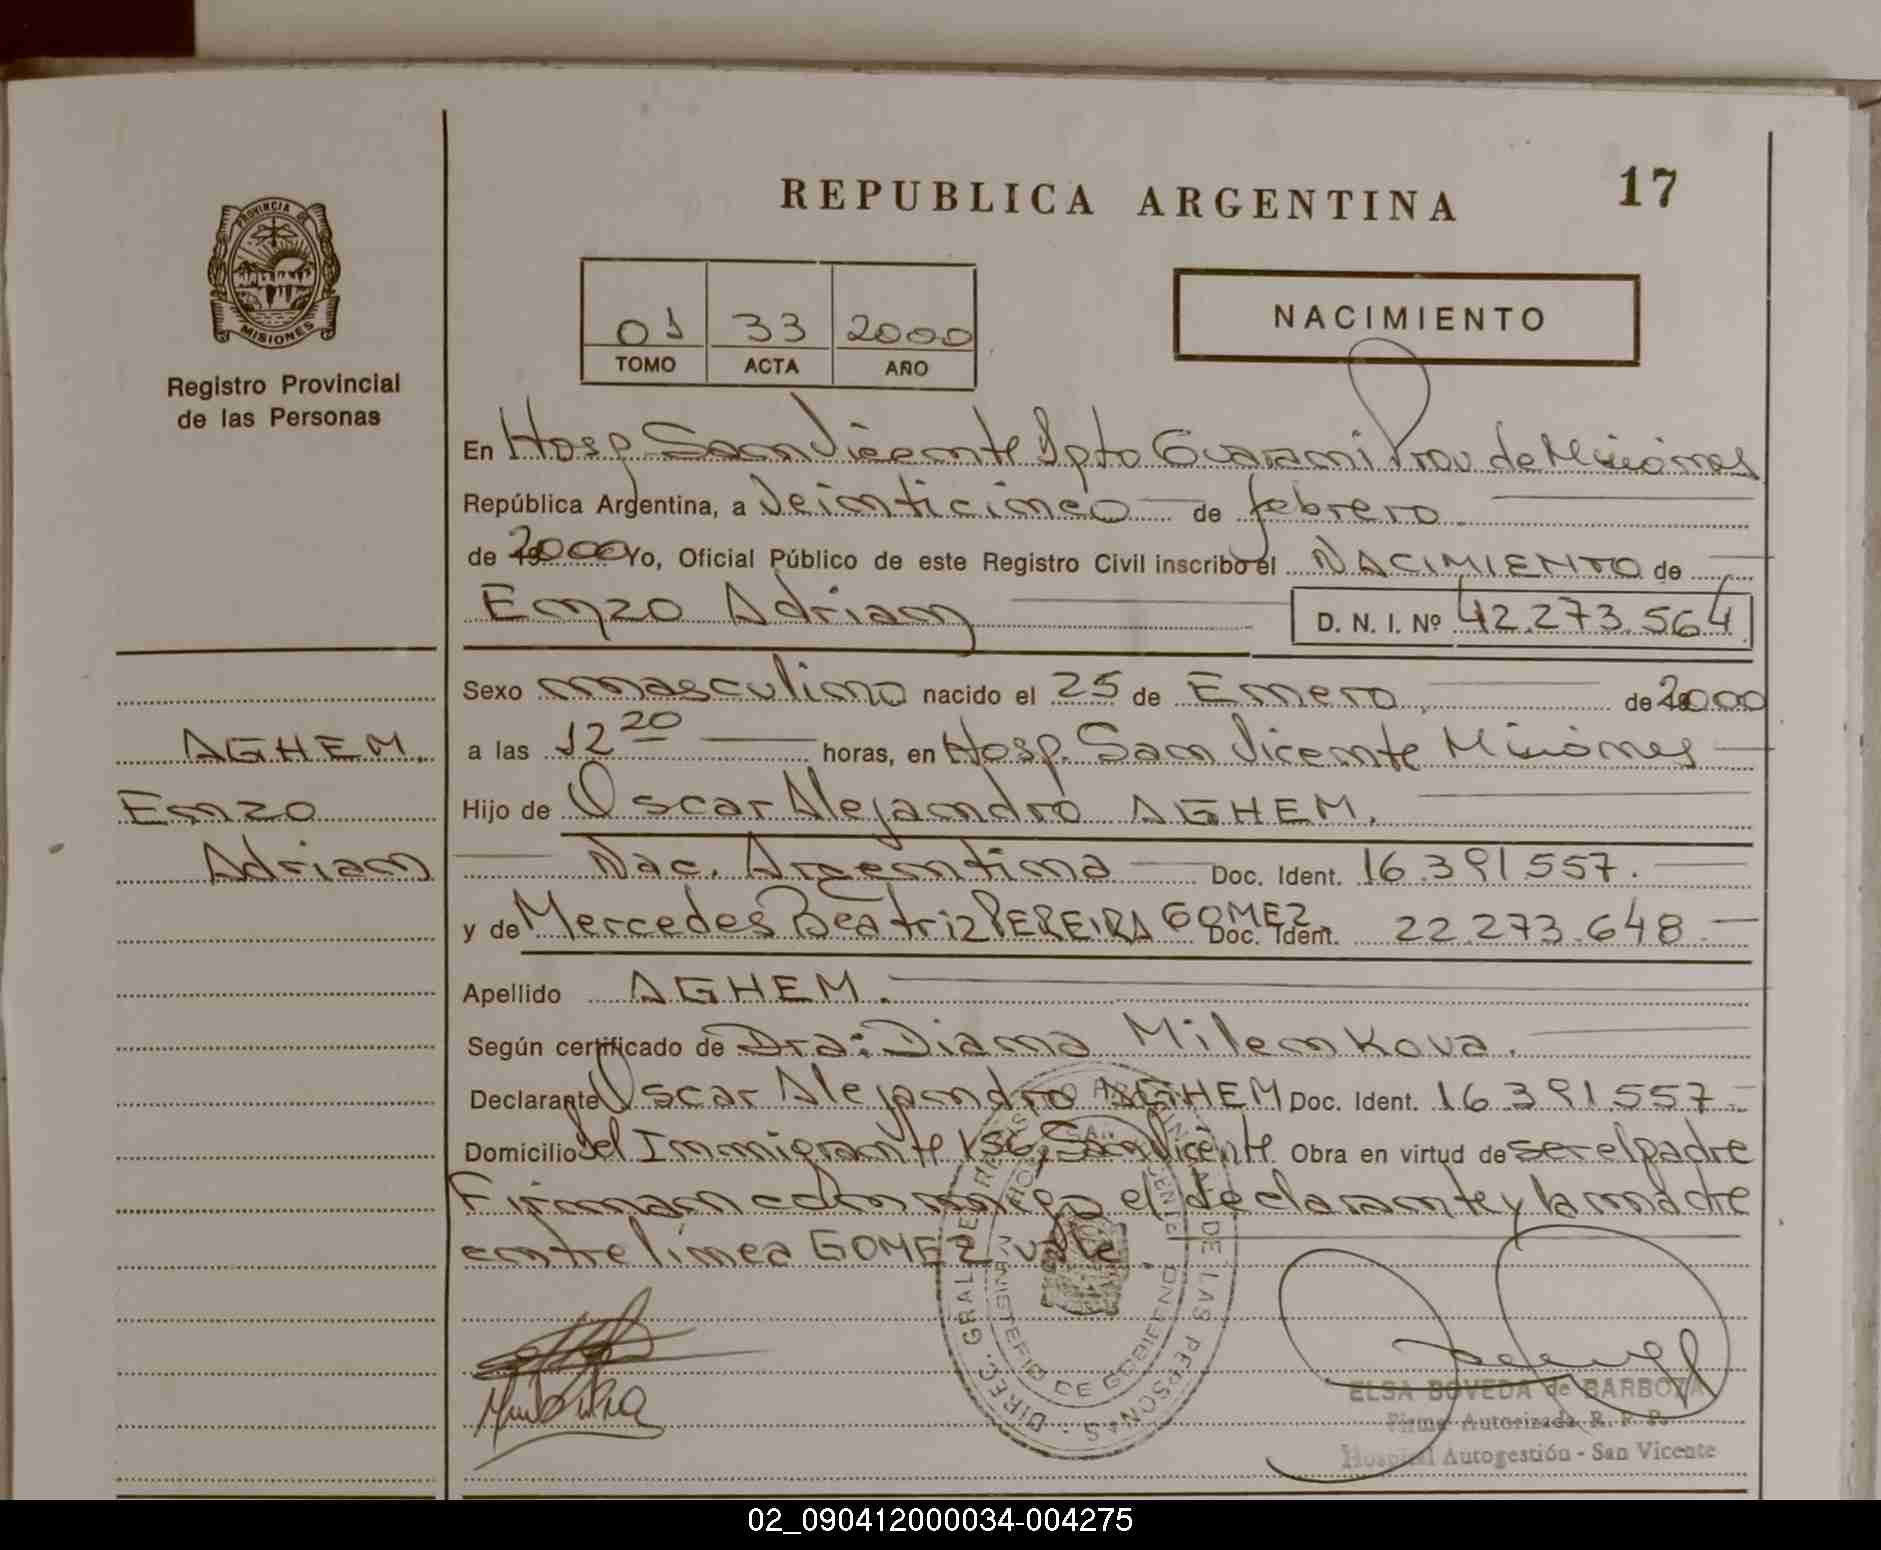 REPUBLICA ARGENTINA
17
PROVINCIA DE
MISIONES
Registro Provincial
de las Personas
NACIMIENTO
01 33 2000
TOMO ACTA AÑO
En Hosp San Vicente Dpto Guarani Prov de Misiones
República Argentina, a Veinticinco de febrero
de 2000 Yo, Oficial Público de este Registro Civil inscribo el NACIMIENTO de
Enzo Adrian D. N. I. Nº 42.273.564
Sexo masculino nacido el 25 de Enero de 2000
AGHEM.
a las 12 20 horas, en Hosp. San Vicente Misiones
Enzo
Hijo de Oscar Alejandro AGHEM.
Adrian
Nac. Argentina Doc. Ident. 16.391.557.
y de Mercedes Beatriz PEREIRA GOMEZ Doc. Ident. 22.273.648
Apellido AGHEM.
Según certificado de Dra: Diana Milenkova.
Declarante Oscar Alejandro AGHEM Doc. Ident. 16.391.557
Domicilio del Inmigrante 156, San Vicente Obra en virtud de ser el padre
Firman conmigo el declarante y la madre
entrelinea GOMEZ vale
DIREC. GRAL. DE LAS PERSONAS
MINISTERIO DE GOBIERNO
ELSA BOVEDA de BARBOZA
Firma Autorizada R. P. P.
Hospital Autogestión - San Vicente
02_090412000034-004275